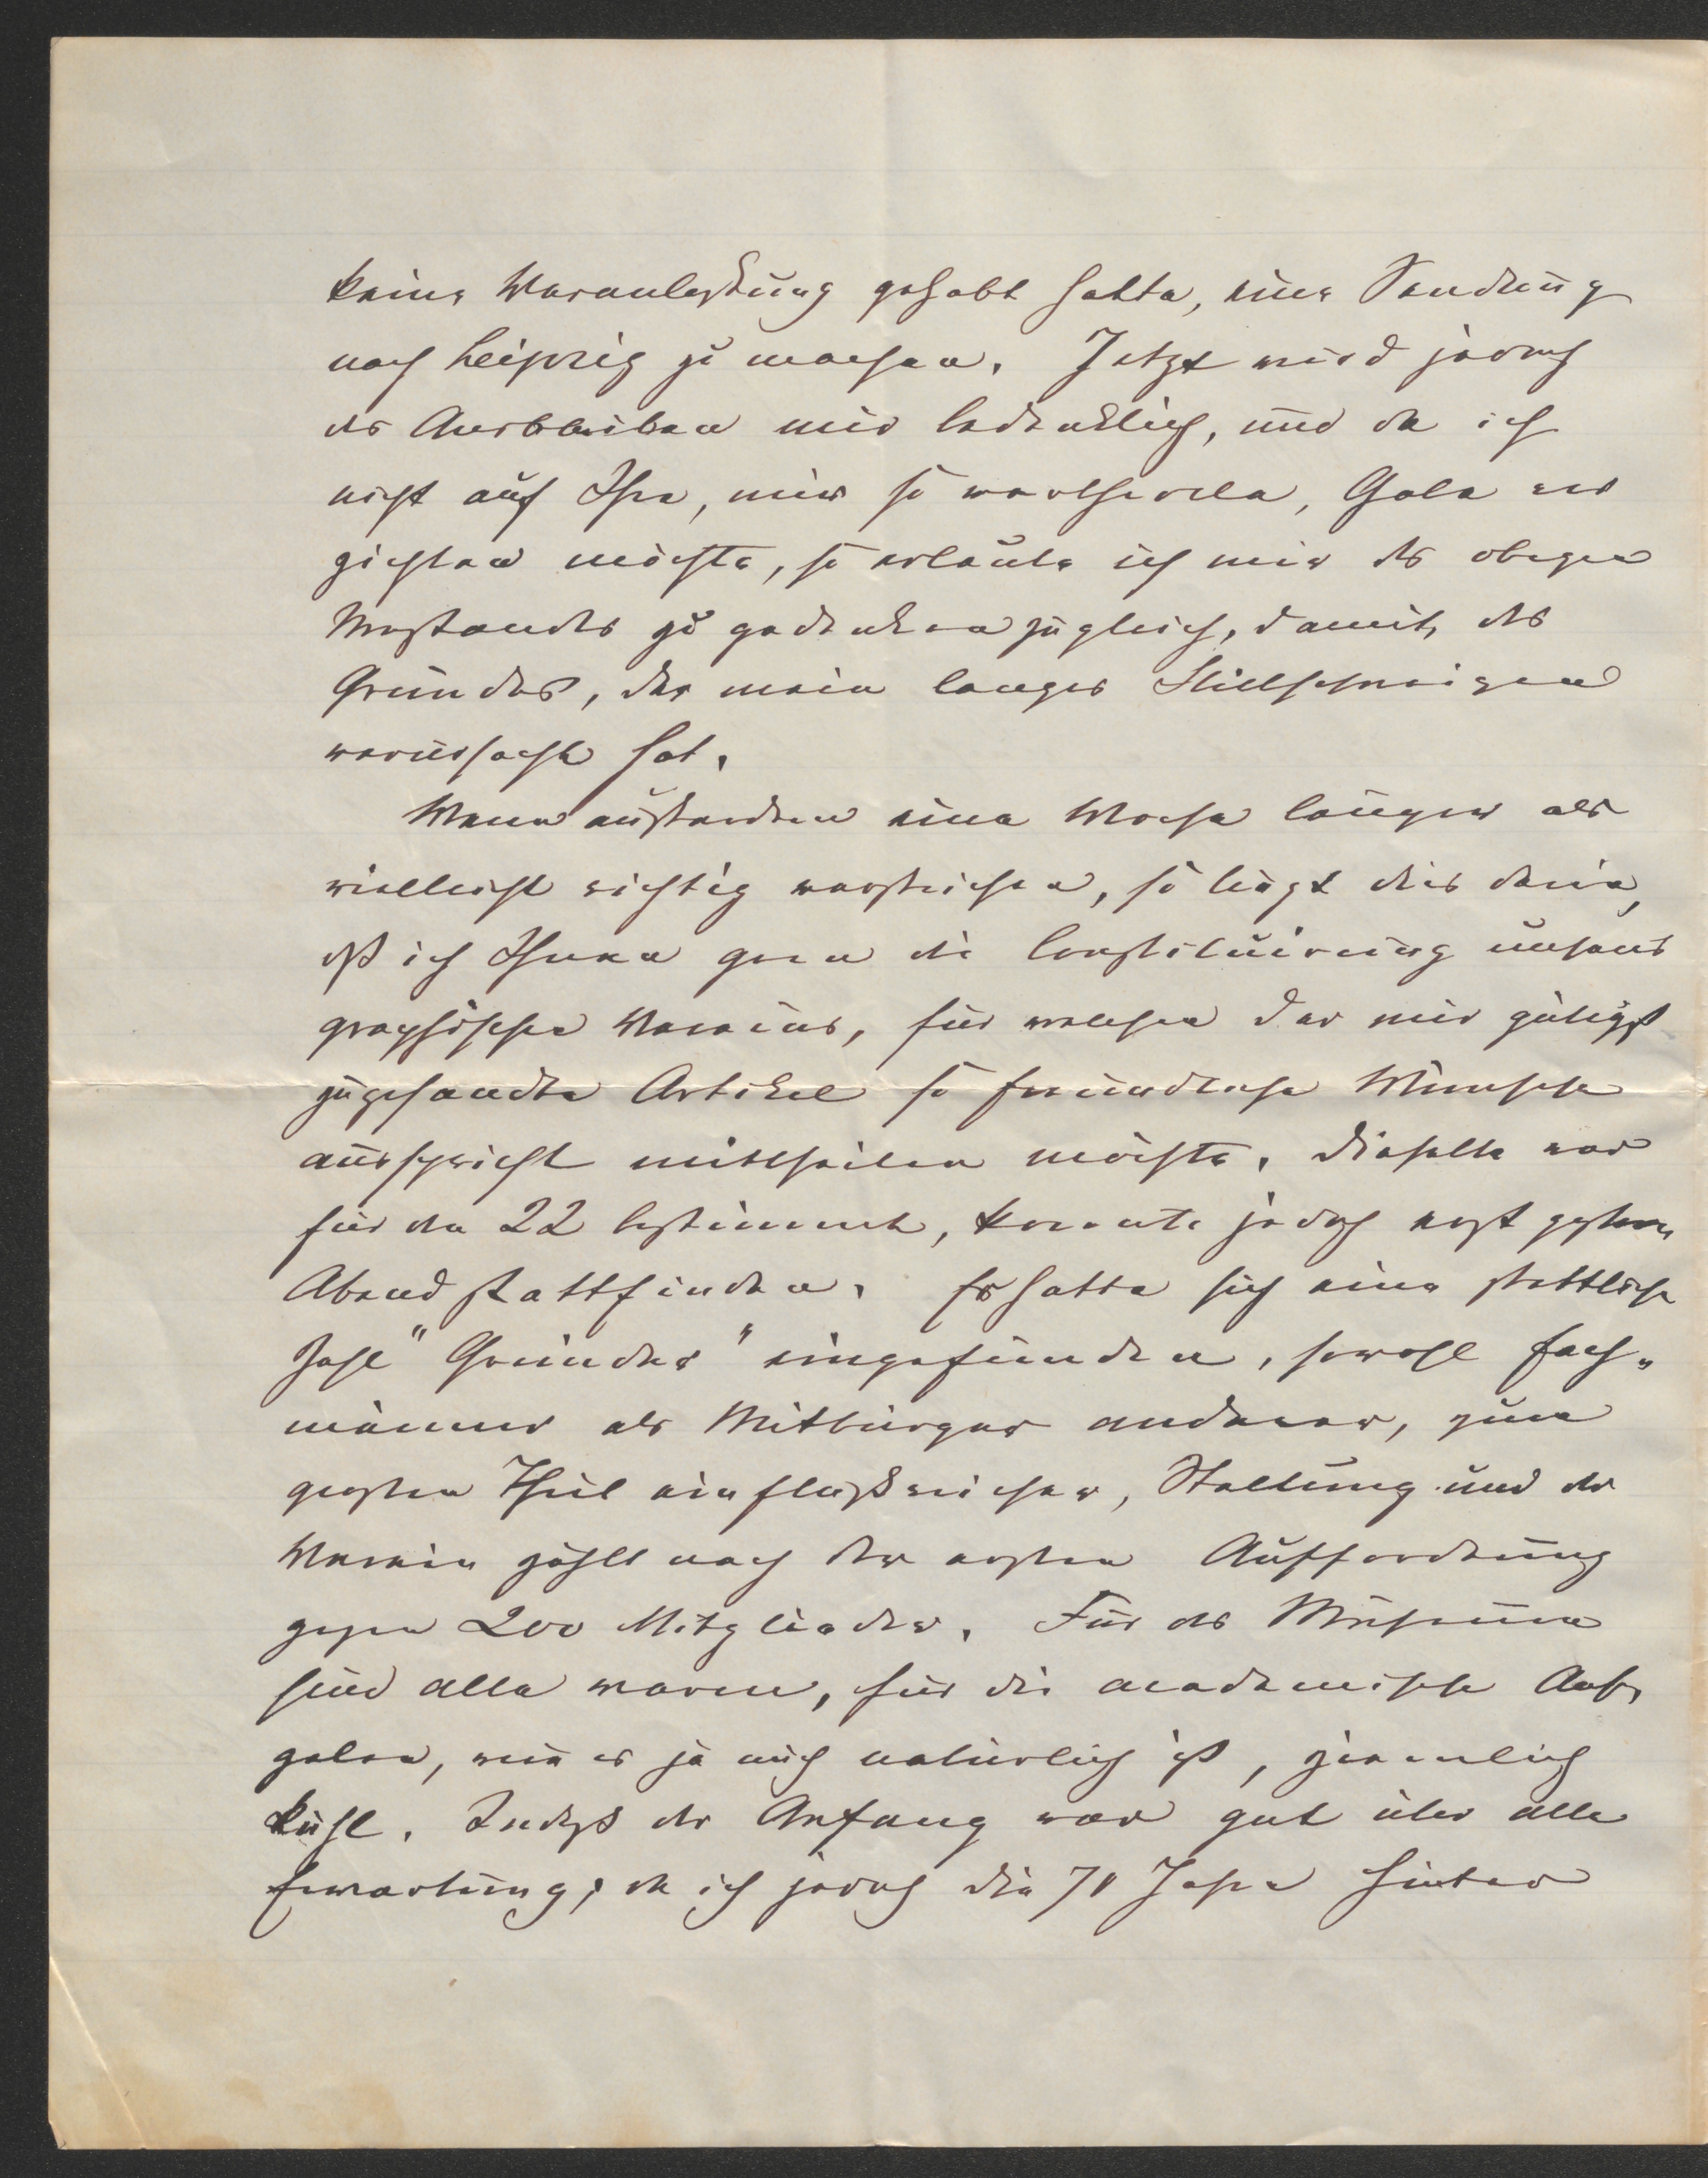 keine Veranlassung gehabt hatte, eine Sendung
nach Leipzig zu machen. Jetzt wird jedoch
das Ausbleiben mir bedenklich, und da ich
nicht auf Ihre, mir so werthvolle, Gabe ver
zichten möchte, so erlaube ich mir des obigen
Umstandes zu gedenken zugleich, damit, des
Grundes, der mein langes Stillschweigen
verursacht hat.
Wenn außerdem eine Woche länger als
vielleicht richtig verstrichen, so liegt dies darin,
daß ich Ihnen gern die Constituirung unseres
graphischen Vereins, für welchen der mir gütigst
zugesandte Artikel so freundliche Wünsche
ausspricht mittheilen möchte. Dieselbe war
für den 22 bestimmt, konnte jedoch erst gestern
Abend stattfinden. Es hatte sich eine stattliche
Zahl "Gründer" eingefunden, sowohl Fach-
männer als Mitbürger anderer, zum
großen Theil einflußreicher, Stellung und der
Verein zählt nach der ersten Aufforderung
gegen 200 Mitglieder. Für das Museum
sind alle warm, für die academischen Auf-
gaben, wie es ja auch natürlich ist, ziemlich
kühl. Indeß der Anfang war gut über alle
Erwartung; da ich jedoch die 70 Jahre hinter